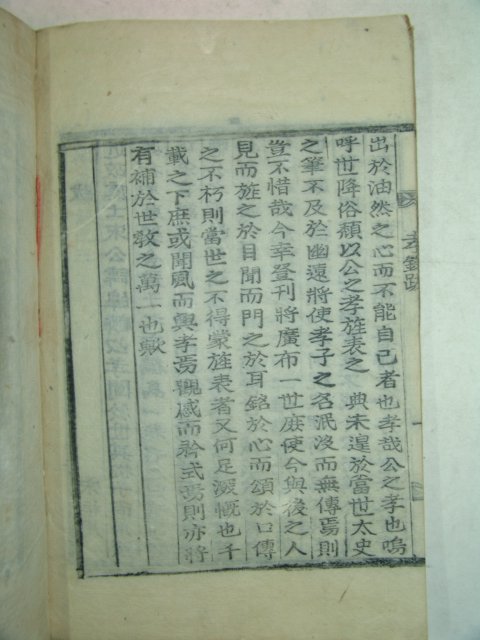 出於油然之心而不能自已者也孝哉公之孝也嗚
呼世降俗頹以公之孝旌表之典未遑於當世太史
之筆不及於幽遠將使孝子之名泯沒而無傳焉則
豈不惜哉今幸登刊將廣布一世庶使今與後之人
見而旌之於目聞而門之於耳銘於心而頌於口傳
之不朽則當世之不得蒙旌表者又何足溉慨也千
載之下庶或聞風而興孝焉觀感而矜式焉則亦將
有補於世敎之萬一也歟